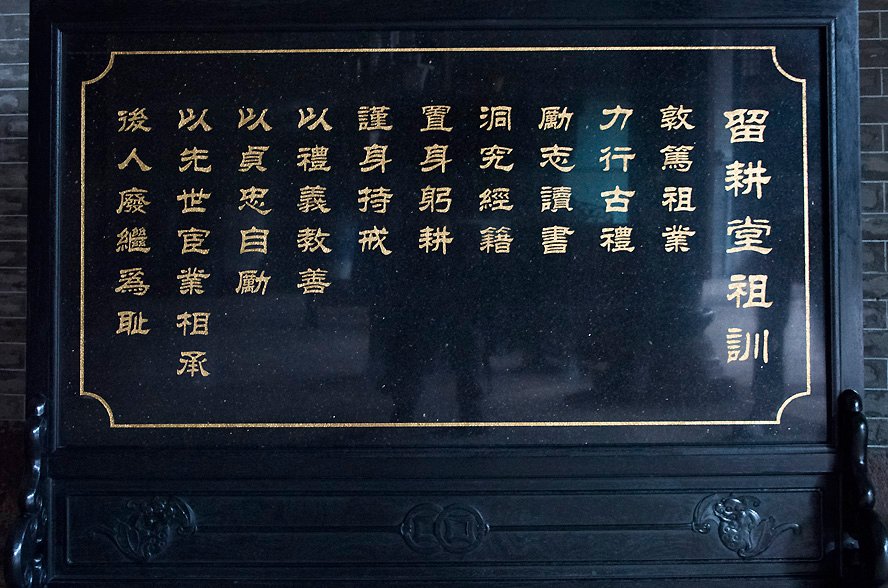 留耕堂祖訓
敦篤祖業
力行古禮
勵志讀書
洞究經籍
置身躬耕
謹身持戒
以禮義教善
以貞忠自勵
以先世宦業相承
後人廢繼為恥